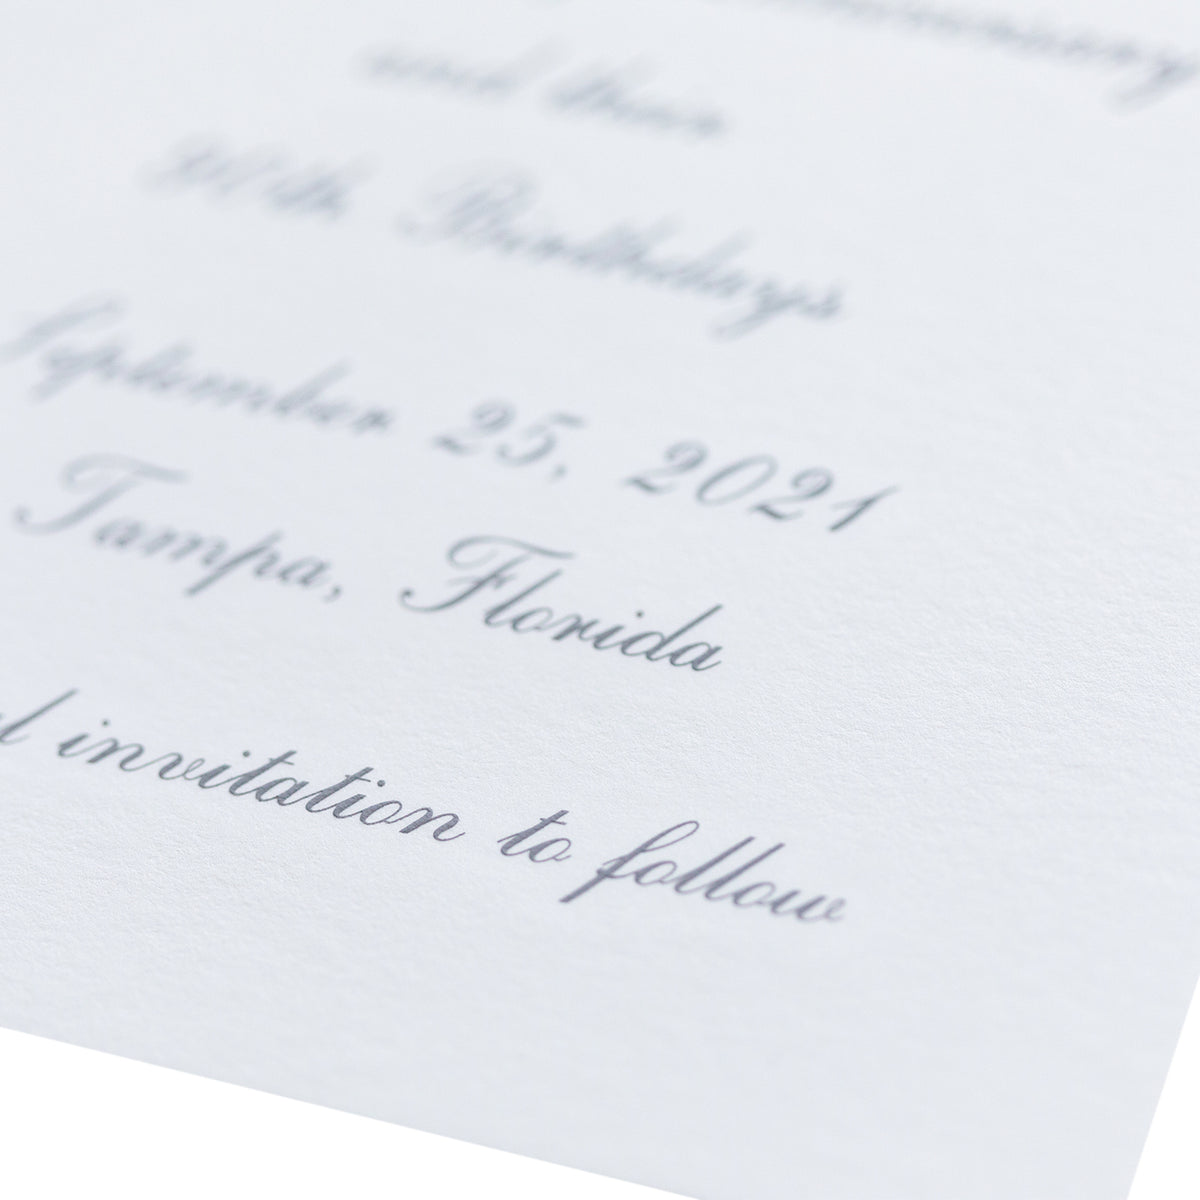 and their
Birthdays
September 25, 2021
Tampa, Florida
invitation to follow